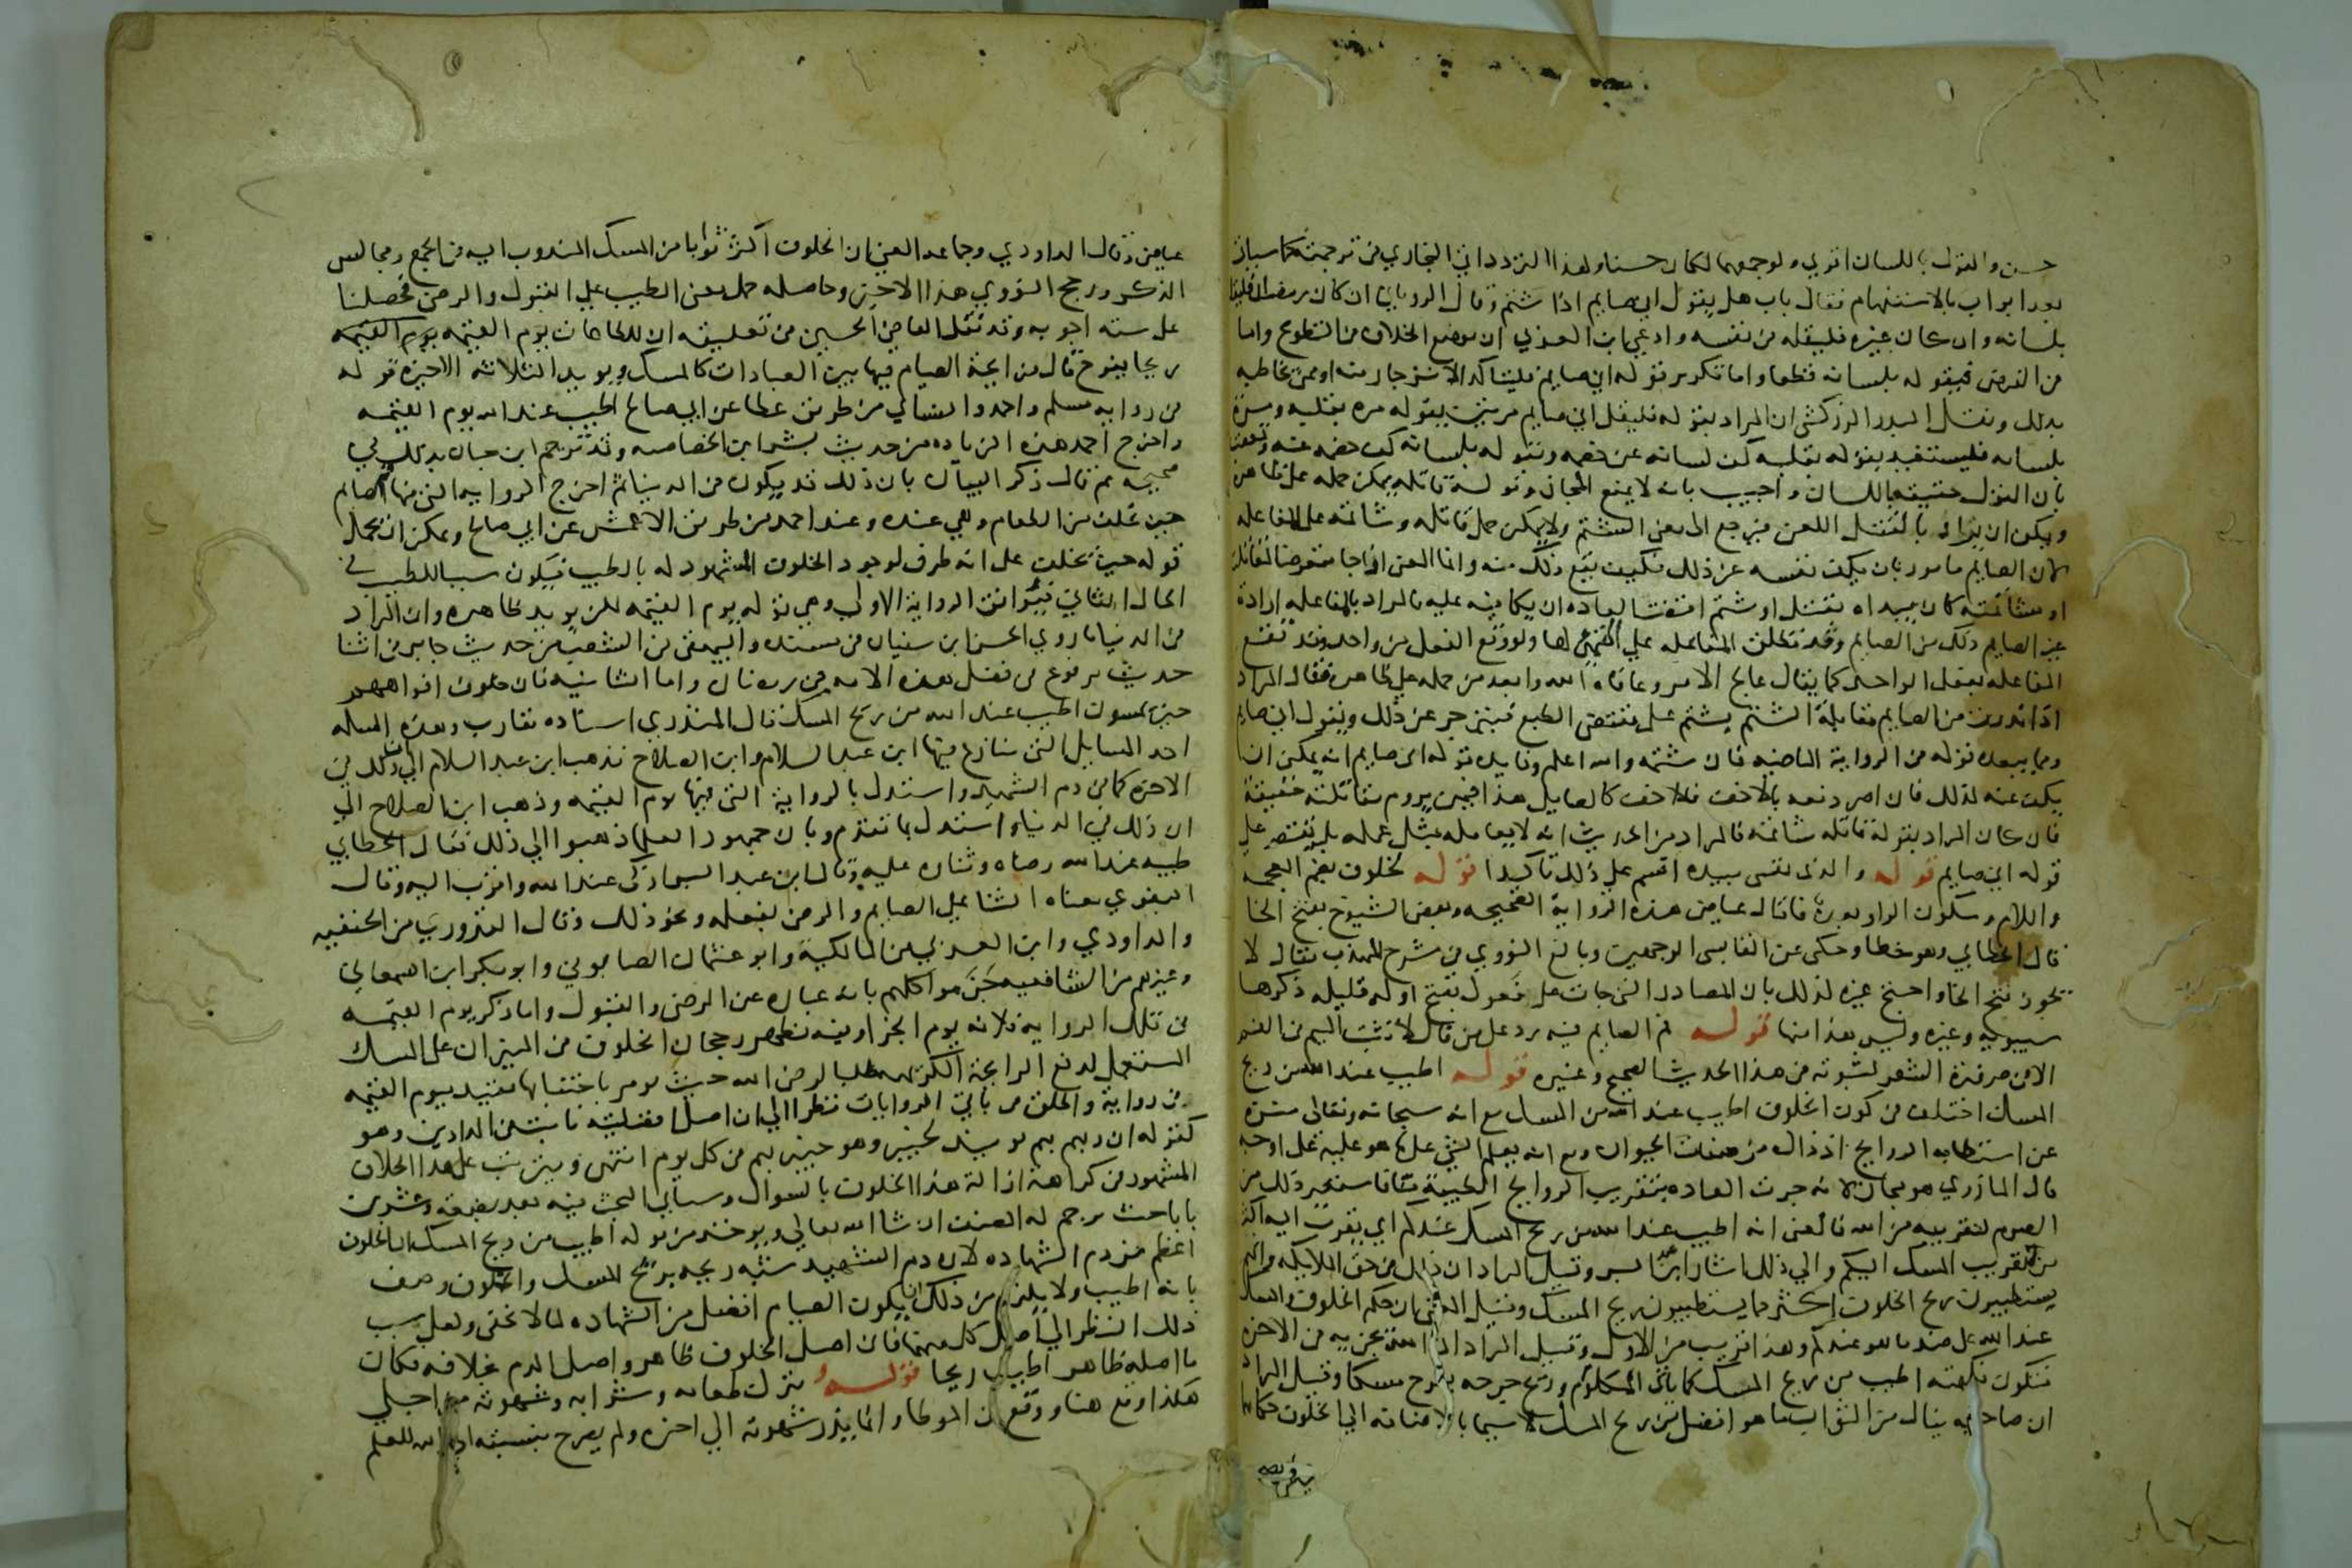 حسن والقول باللسان اقوي ولو جمعهما لكان حسنا ولهذا التردد اتي البخاري في ترجمته كما سياتي
بعد ابواب بالاستفهام فقال باب هل يقول اني صايم اذا شتم وقال الروياني ان كان رمضان فليقل
بلسانه وان كان غيره فليقله في نفسه وادعي ابن العربي ان موضع الخلاف في التطوع واما
في الفرض فيقوله بلسانه قطعا واما تكرير قوله اني صايم فليتاكد الانزجار منه او ممن يخاطبه
بذلك ونقل البدر الزركشي ان المراد بقوله فليقل اني صايم مرتين يقوله مره بقلبه ومرة
بلسانه فيستفيد بقوله بقلبه كف لسانه عن خصمه وبقوله بلسانه كف خصمه عنه وتعقب
بان القول حقيقة باللسان واجيب بانه لا يمنع المجاز وقوله قاتله يمكن حمله على ظاهره
ويمكن ان يراد بالقتل اللعن فيرجع الى معنى الشتم ولا يمكن حمل قاتله وشاتمه على المفاعله
لان الصايم مامور بان يكف نفسه عن ذلك فكيف يقع ذلك منه وانما المعنى اذا جا متعرضا لمقاتلته
او مشاتمته كان يبداه بقتل او شتم اقتضت العاده ان يكافيه عليه فالمراد بالمفاعله ارادة
غير الصايم ذلك من الصايم وقد تطلق المفاعله علي التهيئ لها ولو وقع الفعل من واحد وقد تقع
المفاعله بفعل الواحد كما يقال عالج الامر وعافاه الله وابعد من حمله علي ظاهره فقال المراد
اذا بدرت من الصايم مقابلة الشتم بشتم على مقتضى الطبع فينزجر عن ذلك ويقول اني صايم
ومما يبعده قوله في الرواية الماضيه فان شتمه والله اعلم وفايده قوله اني صايم انه يمكن ان
يكف عنه لذلك فان اصر دفعه بالاخف فالاخف كالصايل هذا فيمن يروم مقاتلته حقيقة
فان كان المراد بقوله قاتله شاتمه فالمراد من الحديث انه لا يعامله بمثل عمله بل يقتصر علي
قوله اني صايم قوله والذي نفسي بيده اقسم علي ذلك تاكيدا قوله لخلوف بضم المعجمه
واللام وسكون الواو بعدها فا قال عياض هذه الرواية الصحيحه وبعض الشيوخ بفتح الخا
قال الخطابي وهو خطا وحكى عن القابسي الوجهين وبالغ النووي في شرح المهذب فقال لا
يجوز فتح الخا واحتج غيره لذلك بان المصادر التي جات على فعول بفتح اوله قليله ذكرها
سيبويه وغيره وليس هذا منها قوله فم الصايم فيه رد على من قال لا تثبت الميم في الفم
الا في ضرورة الشعر لثبوته في هذا الحديث الصحيح وغيره قوله اطيب عند الله من ريح
المسك اختلف في كون الخلوف اطيب عند الله من المسك مع انه سبحانه وتعالى منزه
عن استطابه الروايح اذ ذاك من صفات الحيوان ومع انه يعلم الشي على ما هو عليه على اوجه
قال المازري هو مجاز لانه جرت العاده بتقريب الروايح الطيبة منا فاستعير ذلك من
الصوم لتقريبه من الله فالمعنى انه اطيب عند الله من ريح المسك عندكم اي يقرب اليه اكثر
من تقريب المسك اليكم والي ذلك اشار ابن عبد البر وقيل المراد ان ذلك في حق الملايكه وانهم
يستطيبون ريح الخلوف اكثر مما يستطيبون ريح المسك وقيل المعنى ان حكم الخلوف والمسك
عند الله على ضد ما هو عندكم وهذا قريب من الاول وقيل المراد ان الله يجزيه في الاخره
فتكون نكهته اطيب من ريح المسك كما ياتي المكلوم وريح جرحه يفوح مسكا وقيل المراد
ان صاحبه ينال من الثواب ما هو افضل من ريح المسك لا سيما بالاضافه الي الخلوف حكاهما
عياض وقال الداودي وجماعه المعنى ان الخلوف اكثر ثوابا من المسك المندوب اليه في الجمع ومجالس
الذكر ورجح النووي هذا الاخير وحاصله حمل معنى الطيب علي القبول والرضى فحصلنا
على سته اجوبه وقد نقل القاضي الحسين في تعليقه ان للطاعات يوم القيمه يوم القيمه
ريحا يفوح قال فرايحة الصيام فيها بين العبادات كالمسك ويويد الثلاثه الاخيره قوله
في روايه مسلم واحمد والنساي من طريق عطا عن ابي صالح اطيب عند الله يوم القيمه
واخرج احمد هذه الزياده من حديث بشير ابن الخصاصيه وقد ترجم ابن حبان بذلك في
صحيحه ثم قال ذكر البيان بان ذلك قد يكون في الدنيا ثم اخرج الروايه التي فيها فم الصايم
حين يخلف من الطعام وهي عنده وعند احمد من طريق الاعمش عن ابي صالح ويمكن ان يحمل
قوله حين يخلف على انه ظرف لوجود الخلوف المشهود له بالطيب فيكون سببا للطيب في
الحال الثاني فيوافق الرواية الاولى وهي قوله يوم القيمه لكن يويد ظاهره وان المراد
في الدنيا ما روي الحسن ابن سفيان في مسنده والبيهقي في الشعب من حديث جابر في اثنا
حديث مرفوع في فضل هذه الامه في رمضان واما الثانيه فان خلوف افواههم
حين يمسون اطيب عند الله من ريح المسك قال المنذري اسناده مقارب وهذه المساله
احد المسايل التي تنازع فيها ابن عبد السلام وابن الصلاح فذهب ابن عبد السلام الى ان ذلك في
الاخره كما في دم الشهيد واستدل بالرواية التي فيها يوم القيمه وذهب ابن الصلاح الي
ان ذلك في الدنيا واستدل بما تقدم وبان جمهور العلما ذهبوا الي ذلك فقال الخطابي
طيبه عند الله رضاه وثناوه عليه وقال ابن عبد البر ازكى عند الله واقرب اليه وقال
البغوي معناه الثنا علي الصايم والرضى بفعله ونحو ذلك وقال القدوري من الحنفيه
والداودي وابن العربي من المالكية وابو عثمان الصابوني وابو بكر ابن السمعاني
وغيرهم من الشافعيه جزموا كلهم بانه عباره عن الرضى والقبول واما ذكر يوم القيمه
في تلك الروايه فلانه يوم الجزا وفيه يظهر رجحان الخلوف في الميزان على المسك
المستعمل لدفع الرايحة الكريهه طلبا لرضى الله حيث يومر باجتنابها فقيد بيوم القيمه
في رواية واطلق في باقي الروايات نظرا الي ان اصل افضليته ثابت في الدارين وهو
كقوله ان ربهم بهم يوميذ لخبير وهو خبير بهم في كل يوم انتهى ويترتب على هذا الخلاف
المشهور في كراهة ازالة هذا الخلوف بالسواك وسياتي البحث فيه بعد بضعة وعشرين
بابا حيث ترجم له المصنف ان شا الله تعالي ويوخذ من قوله اطيب من ريح المسك ان الخلوف
اعظم من دم الشهاده لان دم الشهيد شبه ريحه بريح المسك والخلوف وصف
بانه اطيب ولا يلزم من ذلك ان يكون الصيام افضل من الشهاده لما لا يخفى ولعل سبب
ذلك النظر الي اصل كل منهما فان اصل الخلوف طاهر واصل الدم بخلافه فكان
ما اصله طاهر اطيب ريحا قوله يترك طعامه وشرابه وشهوته من اجلي
هكذا وقع هنا ووقع في الموطا وانما يذر شهوته الي اخره ولم يصرح بنسبته الى الله للعلم